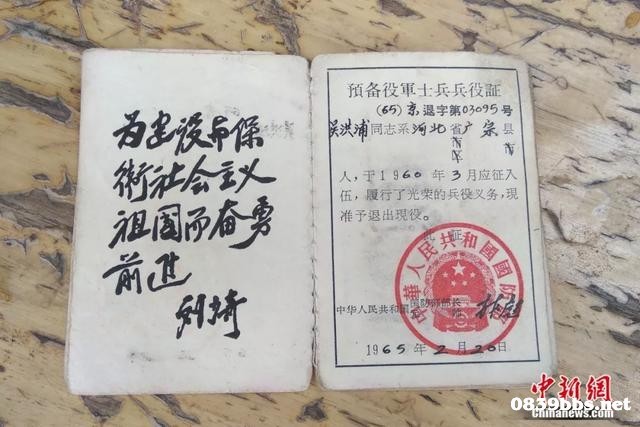 为建设保
衛社会主义
祖国而奮勇
前进
預备役軍士兵兵役証
(65)京退字第03095号
吴洪浦同志系河北省广宗县
市 市
人，于1960年3月应征入
伍，履行了光荣的兵役义务，現
准予退出現役。
中華人民共和國國防部
中华人民共和国国防部部长 林彪
1965年2月20日
中新網
chinanews
0839bbs.net